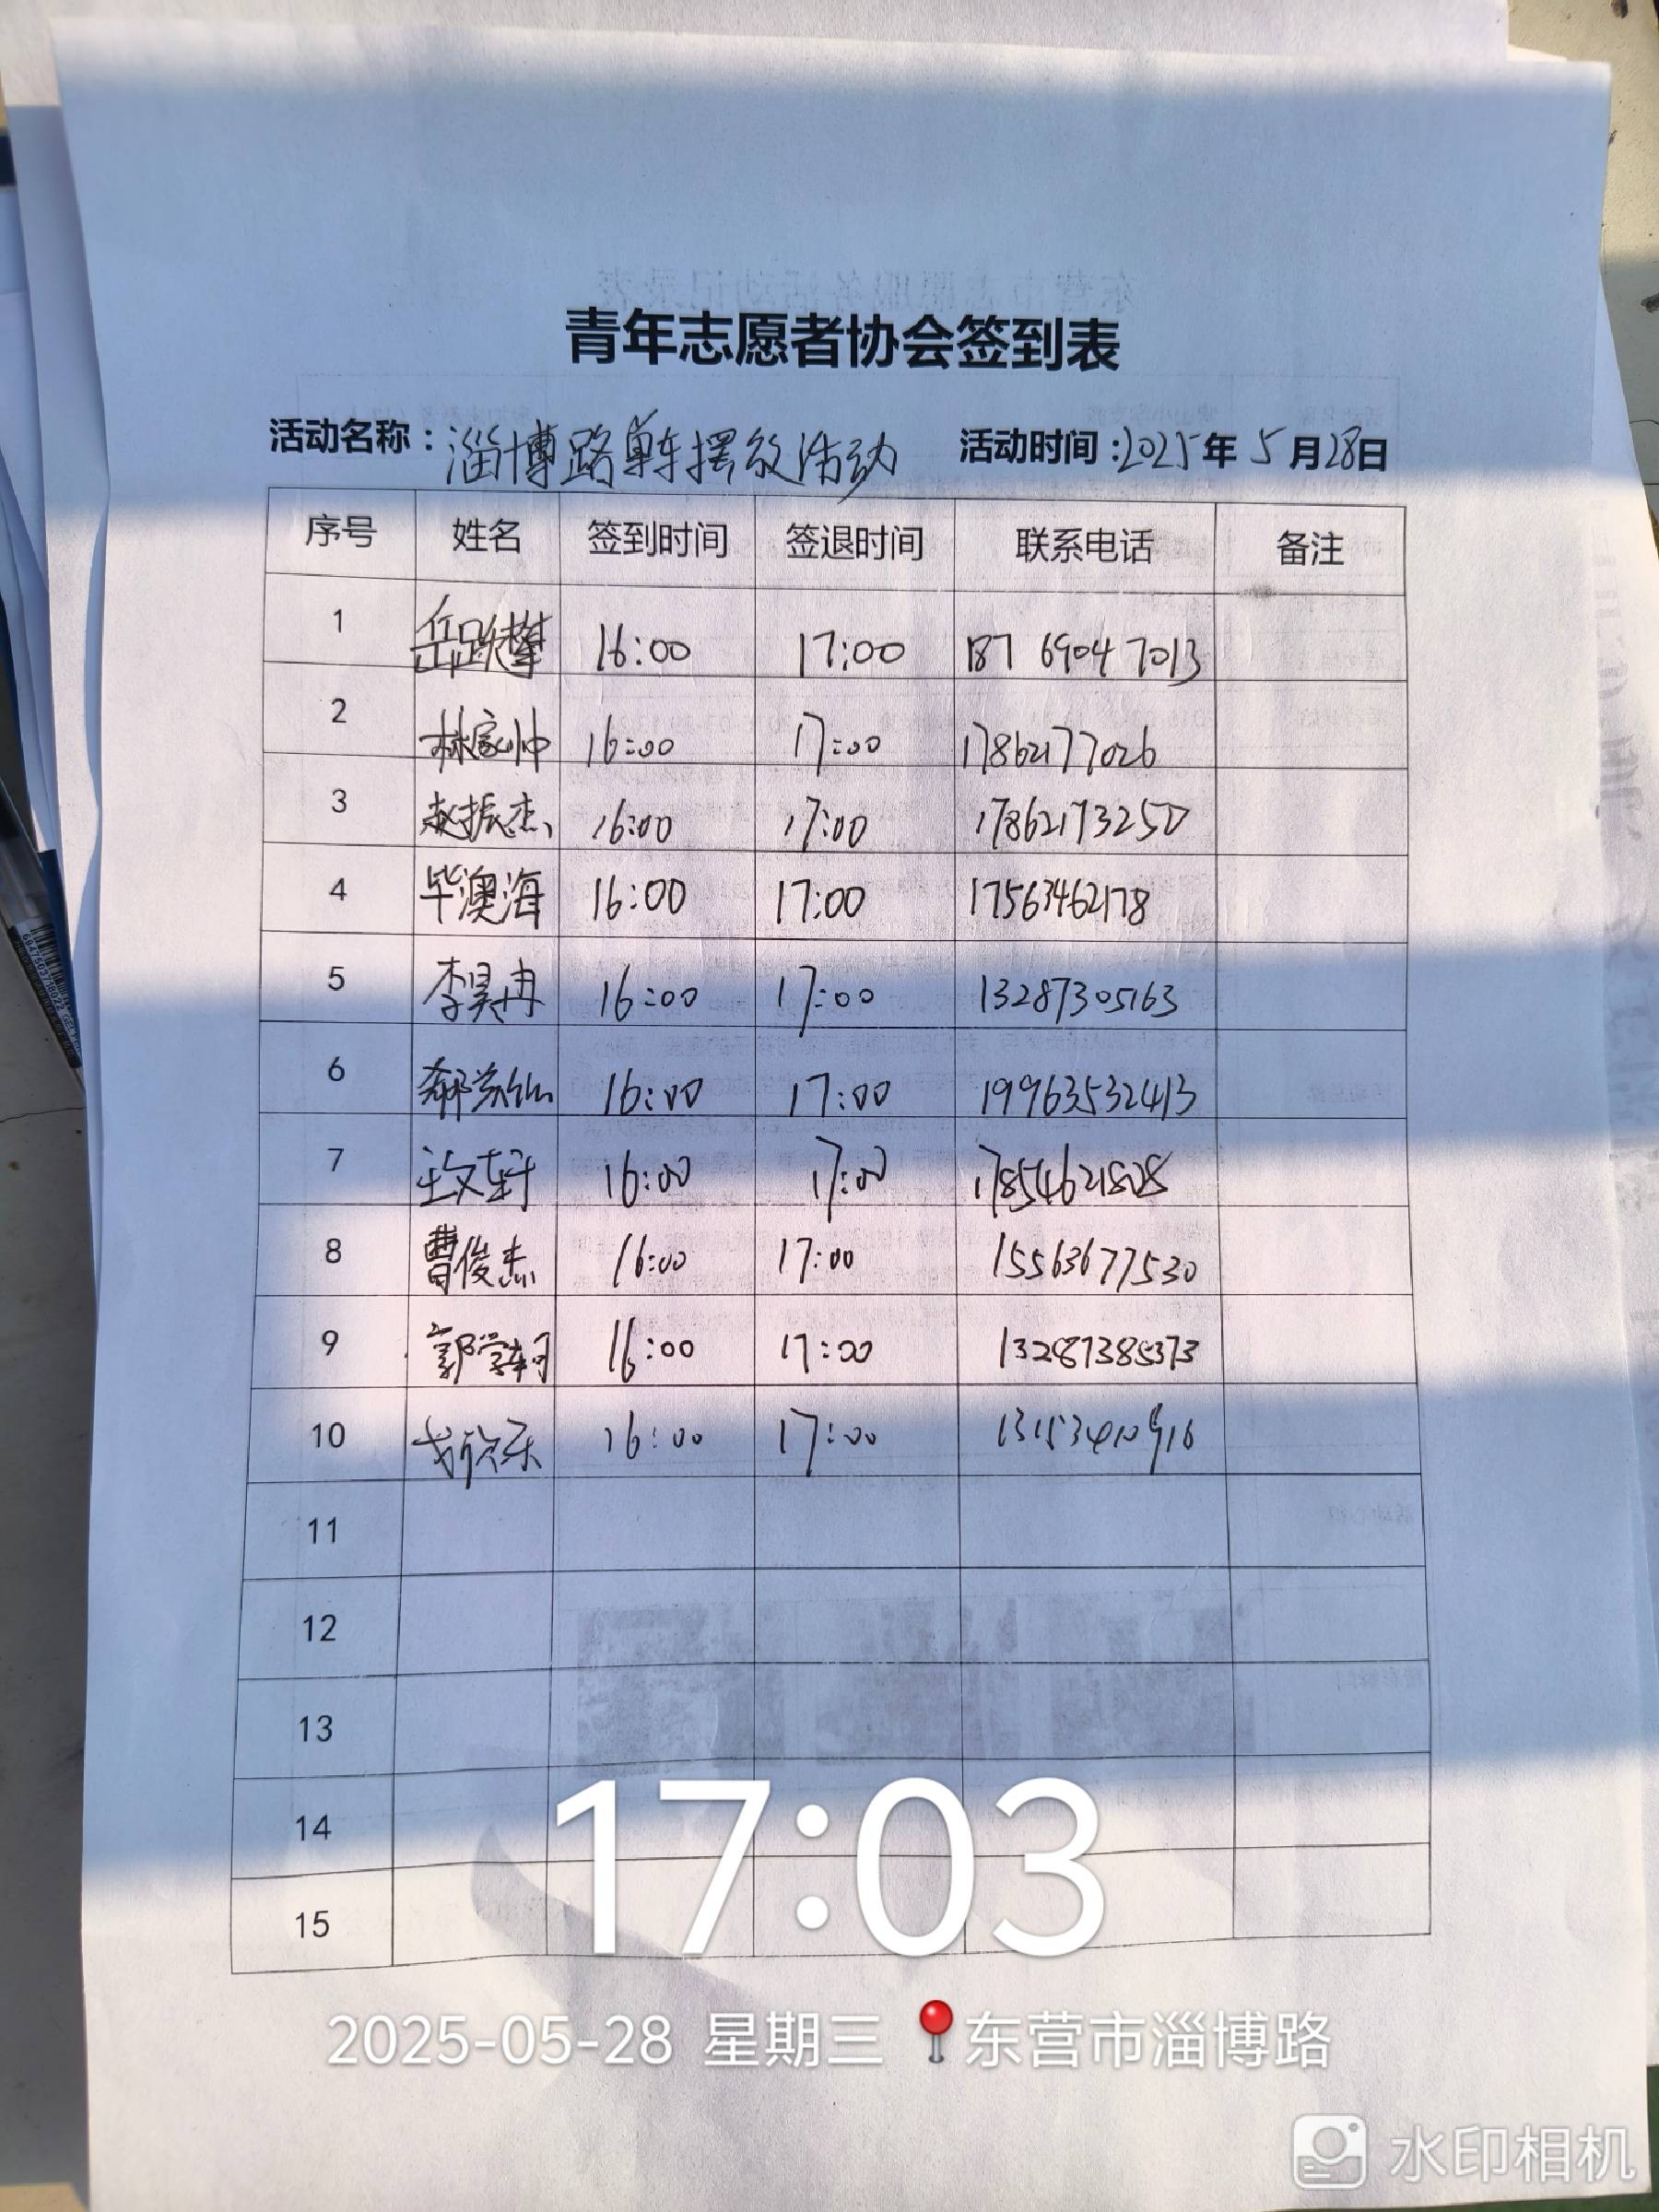 青年志愿者协会签到表
活动名称：淄博路单车摆放活动 活动时间：2025年5月28日
序号 姓名 签到时间 签退时间 联系电话 备注
1 岳跃攀 16:00 17:00 187 6904 7013
2 林家帅 16:00 17:00 17862177026
3 赵振杰 16:00 17:00 17862173250
4 毕澳海 16:00 17:00 17563462178
5 李昊冉 16:00 17:00 13287305163
6 16:00 17:00 19963532413
7 王文轩 16:00 17:00 17854621808
8 曹俊杰 16:00 17:00 15563677530
9 郭学轲 16:00 17:00 13287385373
10 16:00 17:00
11
12
13
14
15
17:03
2025-05-28 星期三 东营市淄博路
水印相机